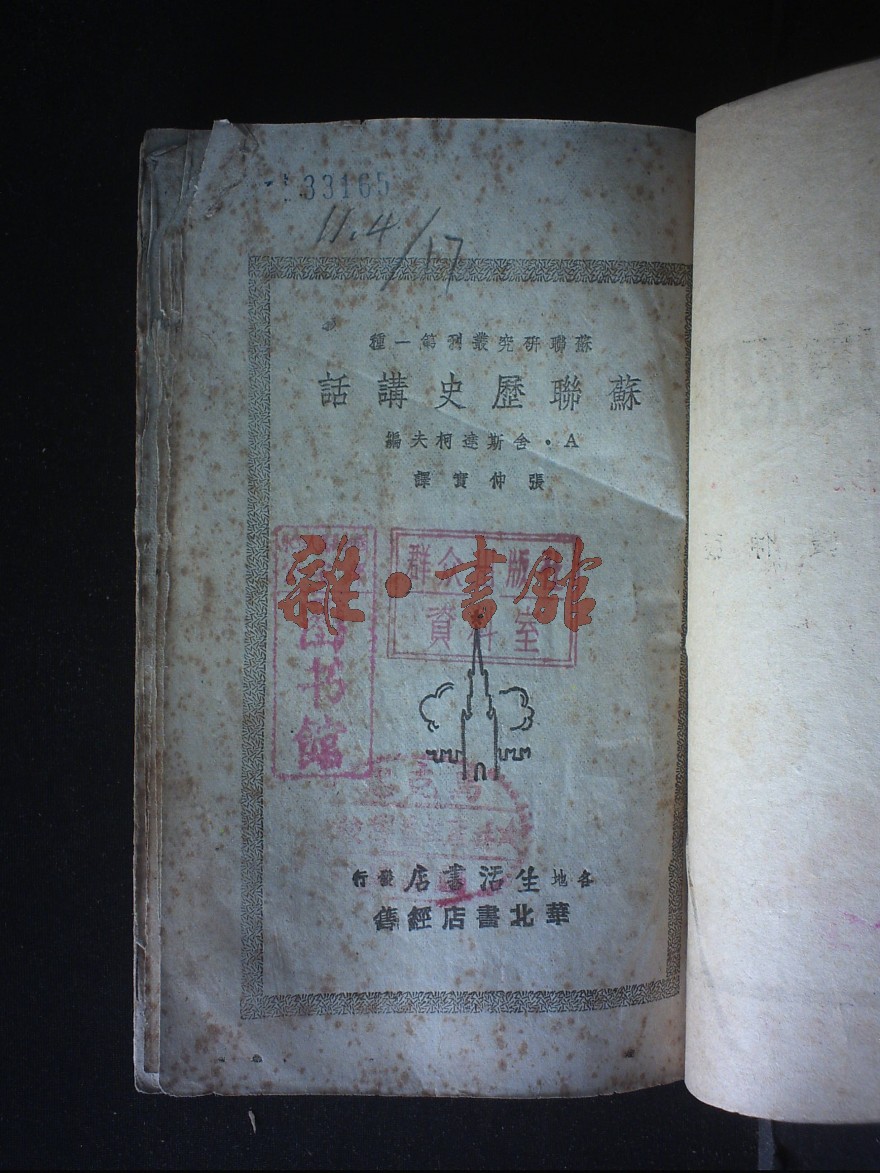 33165
11.4/17
蘇聯研究叢刊第一種
蘇聯歷史講話
A·舍斯達柯夫編
張仲實譯
群众書版
資料室
雜·書館
图书館
各地生活書店發行
華北書店經售